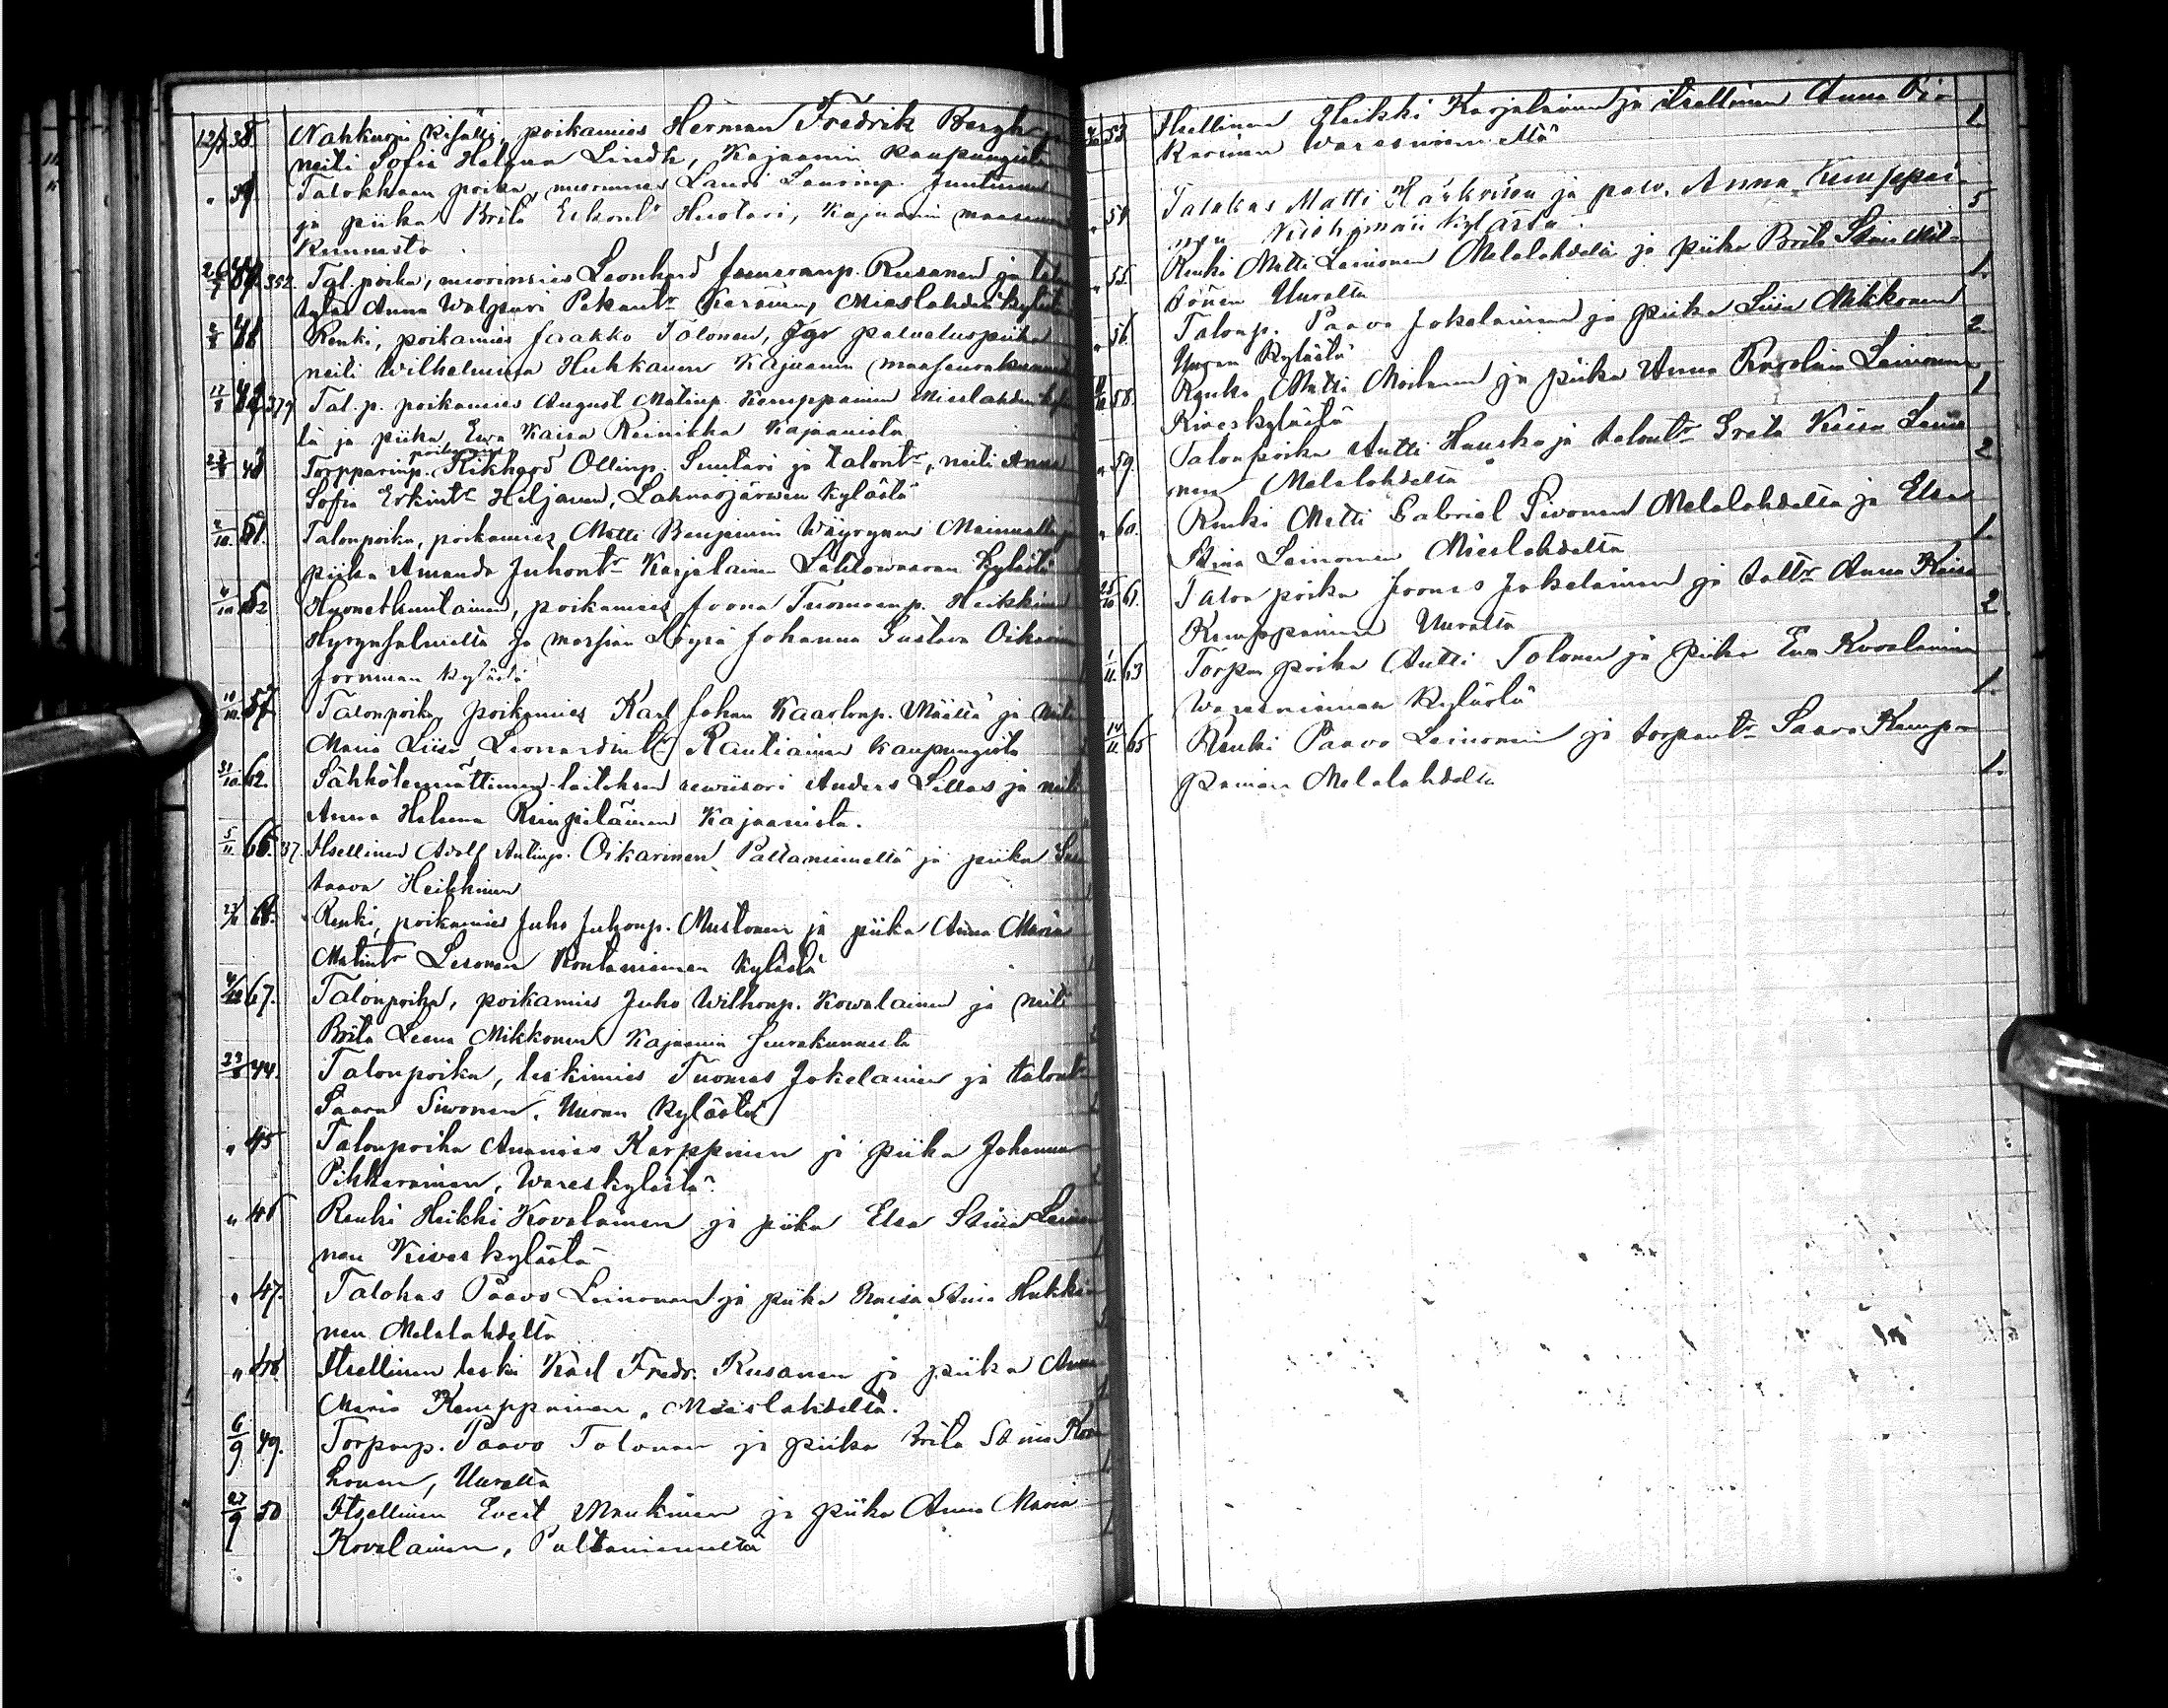 12/7 38. Nahkurin kisälli, poikamies Herman Fredrik Bergh ja
neiti Sofia Helena Lindh, Kajaanin kaupungista
" 39. Talokkaan poika, nuorimies Lauri Laurinp. Juntunen
ja piika Brita Erkont:r Huotari, Kajaanin maaseura
kunnasta
26/7 352. Tal. poika, nuorimies Leonhard Rusanen ja
Anna Walpuri Pekant:r Mieslahden kylästä
41 Renki, poikamies Jaakko Tolonen, ja palveluspiika
neiti Wilhelmina Huhkanen Kajaanin maaseurakunnasta
12/8 42 379 Tal. p. poikamies August Matinp. Kemppainen Mieslahden kyläs
tä ja piika Ewa Kaisa Reinikka Kajaanista
poikamies
43 Torpparinp. Rikhard Ollinp. Suutari ja talont:r, neiti Anna
Sofia Erkint:r Heljanen, Lahnasjärwen kylästä
51. Talonpoika, poikamies Matti Benjamin Wäyrynen Mainualta ja
piika Amanda Juhont:r Karjalainen Lahtowaaran kylästä
4/10 52 Huonethuulainen, poikamies Joona Tuomaanp. Heikkinen
Hyrynsalmelta ja morsian Löysä Johanna Gustava Oikarinen
Jormuan kylästä
10/10 57 Talonpoika, poikamies Karl Johan Kaarlonp. Määttä ja neiti
Maria Liisa Leonardint:r Rautiainen kaupungista
31/10 62. Sähkölennättimen laitoksen rewiisori Anders Lillas ja neiti
Anna Helena Rimpiläinen Kajaanista.
5/11 37. Itsellinen Adolf Antinp. Oikarinen Paltaniemeltä ja piika
taava Heikkinen
Renki, poikamies Juho Juhonp. Mustonen ja piika Anna Maria
Matint:r Lesonen Kontaniemen kylästä
4/12 67. Talonpoika, poikamies Juho Wilhonp. Kowalainen ja neiti
Brita Leena Mikkonen Kajaanin seurakunnasta
23/8 44. Talonpoika, leskimies Tuomas Jokelainen ja talont:r
Saara Siwonen, Uuran kylästä
" 45 Talonpoika Ananias Karppinen ja piika Johanna
Pikkarainen, Wareskylästä.
" 46 Renki Heikki Kovalainen ja piika Elsa Stiina Leino
nen Kiveskylästä
" 47. Talokas Paavo Leinonen ja piika Kaisa Stina Hukki
nen Melalahdelta
" 48. Itsellinen leski Karl Fredr. Rusanen ja piika Anna
Maria Kemppainen, Mieslahdelta.
6/9 49. Torparp. Paavo Tolonen ja piika Brita Stina Kor
honen, Uuralta
27/9 50 Itsellinen Evert Manninen ja piika Anna Maria
Kovalainen, Paltaniemeltä
53 Itsellinen Heikki Karjalainen ja itsellinen Anna Oi
karinen Waresniemeltä 1.
" 54 Talokas Matti Härkönen ja palv. Anna Kemppai
nen kylästä 5
" 55. Renki Matti Leinonen Melalahdelta ja piika Brita Stina
Uuralta 1.
" 56. Talonp. Paavo Jokelainen ja piika Liisa Mikkonen
Uuran kylästä 2
58. Renki Matti Moilanen ja piika Anna Karolina Leinonen
Kiveskylästä 1
" 59. Talonpoika Antti Hauska ja talont:r Greta Kaisa Leino
nen Melalahdelta 2
" 60. Renki Matti Gabriel Siwonen Melalahdelta ja Elsa
Stina Leinonen Mieslahdelta 1.
25/10 61. Talon poika Joonas Jokelainen ja talt:r Anna Kaisa
Kemppainen Uuralta 2.
1/11 63 Torpan poika Antti Tolonen ja piika Eva Kovalainen
Waresniemen kylästä 1.
14/11 65 Renki Paavo Leinonen ja torpant:r Saara Kemp
painen Melalahdelta 1.